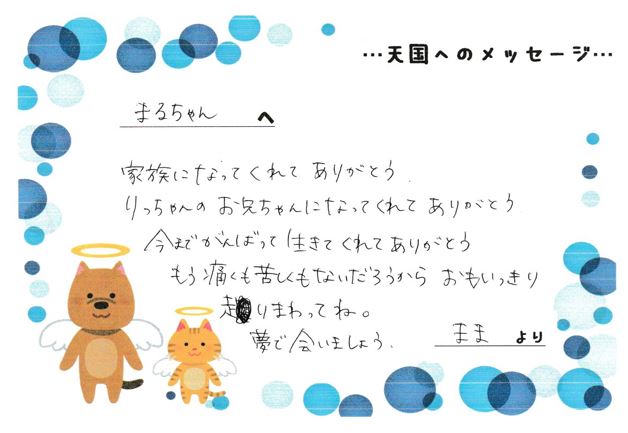 …天国へのメッセージ…
まるちゃん へ
家族になってくれて ありがとう.
りっちゃんの お兄ちゃんになってくれて ありがとう
今までがんばって生きてくれてありがとう
もう痛くも苦しくもないだろうから おもいっきり
りまわってね。
夢で会いましょう.
まま より